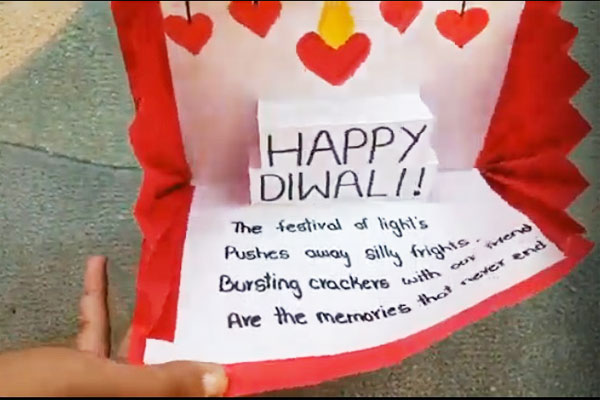 HAPPY
DIWALI!
The festival of light's
Pushes away silly frights.
Bursting crackers with our friend
Are the memories that never end